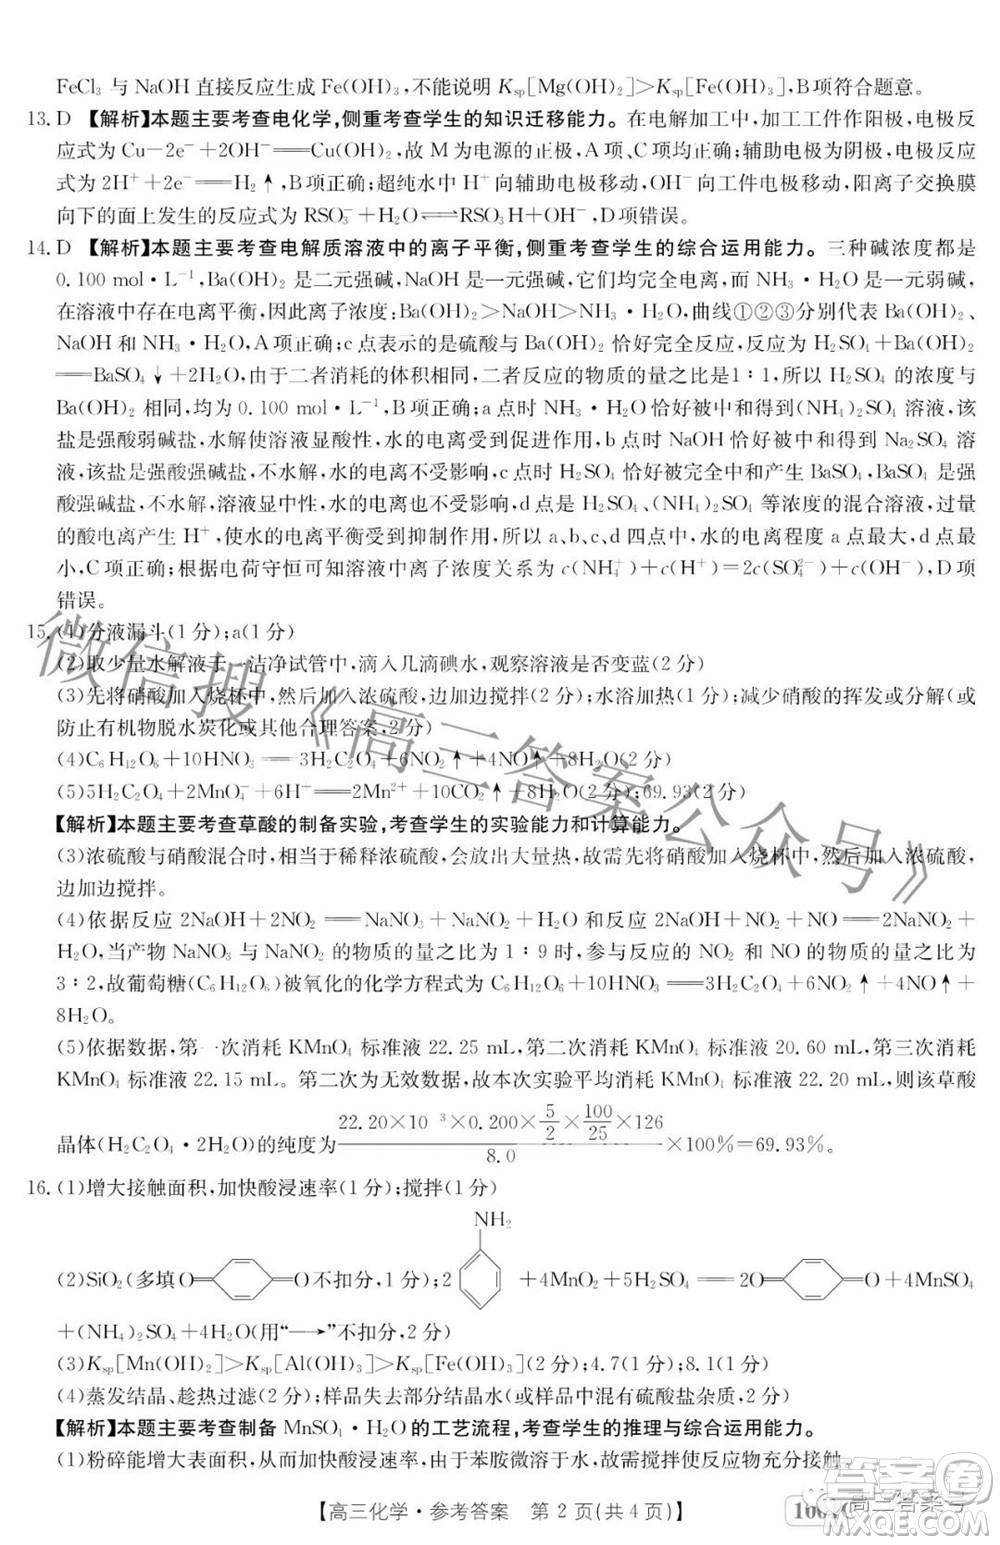 FeCl₃ 与 NaOH 直接反应生成 Fe(OH)₃,不能说明 Kₛₚ[Mg(OH)₂]>Kₛₚ[Fe(OH)₃],B项符合题意。
13. D 【解析】本题主要考查电化学,侧重考查学生的知识迁移能力。在电解加工中,加工工件作阳极,电极反
应式为 Cu-2e⁻+2OH⁻══Cu(OH)₂,故 M 为电源的正极,A项、C项均正确;辅助电极为阴极,电极反应
式为 2H⁺+2e⁻══H₂↑,B项正确;超纯水中 H⁺向辅助电极移动,OH⁻向工件电极移动,阳离子交换膜
向下的面上发生的反应式为 RSO₃⁻+H₂O⇌RSO₃H+OH⁻,D项错误。
14. D 【解析】本题主要考查电解质溶液中的离子平衡,侧重考查学生的综合运用能力。三种碱浓度都是
0.100 mol·L⁻¹,Ba(OH)₂ 是二元强碱,NaOH 是一元强碱,它们均完全电离,而 NH₃·H₂O 是一元弱碱,
在溶液中存在电离平衡,因此离子浓度:Ba(OH)₂>NaOH>NH₃·H₂O,曲线①②③分别代表 Ba(OH)₂、
NaOH 和 NH₃·H₂O,A项正确;c点表示的是硫酸与 Ba(OH)₂ 恰好完全反应,反应为 H₂SO₄+Ba(OH)₂
══BaSO₄↓+2H₂O,由于二者消耗的体积相同,二者反应的物质的量之比是1∶1,所以 H₂SO₄ 的浓度与
Ba(OH)₂ 相同,均为 0.100 mol·L⁻¹,B项正确;a点时 NH₃·H₂O 恰好被中和得到(NH₄)₂SO₄ 溶液,该
盐是强酸弱碱盐,水解使溶液显酸性,水的电离受到促进作用;b点时 NaOH 恰好被中和得到 Na₂SO₄ 溶
液,该盐是强酸强碱盐,不水解,水的电离不受影响,c点时 H₂SO₄ 恰好被完全中和产生 BaSO₄,BaSO₄ 是
强酸强碱盐,不水解,溶液显中性,水的电离也不受影响,d点时为 H₂SO₄、(NH₄)₂SO₄ 等浓度的混合溶液,过量
的酸电离产生 H⁺,使水的电离平衡受到抑制作用,所以 a、b、c、d 四点中,水的电离程度 a 点最大,d 点最
小,C项正确;根据电荷守恒可知溶液中离子浓度关系为 c(NH₄⁺)+c(H⁺)=2c(SO₄²⁻)+c(OH⁻),D项
错误。
15. (1)分液漏斗(1分);a(1分)
(2)取少量水解液于一洁净试管中,滴入几滴碘水,观察溶液是否变蓝(2分)
(3)先将硝酸加入烧杯中,然后加入浓硫酸,边加边搅拌(2分);水浴加热(1分);减少硝酸的挥发或分解(或
防止有机物脱水炭化或其他合理答案,2分)
(4)C₆H₁₂O₆+10HNO₃══3H₂C₂O₄+6NO₂↑+4NO↑+8H₂O(2分)
(5)5H₂C₂O₄+2MnO₄⁻+6H⁺══2Mn²⁺+10CO₂↑+8H₂O(2分);69.93(2分)
【解析】本题主要考查草酸的制备实验,考查学生的实验能力和计算能力。
(3)浓硫酸与硝酸混合时,相当于稀释浓硫酸,会放出大量热,故需先将硝酸加入烧杯中,然后加入浓硫酸,
边加边搅拌。
(4)依据反应 2NaOH+2NO₂══NaNO₃+NaNO₂+H₂O 和反应 2NaOH+NO₂+NO══2NaNO₂+
H₂O,当产物 NaNO₃ 与 NaNO₂ 的物质的量之比为 1∶9时,参与反应的 NO₂ 和 NO 的物质的量之比为
3∶2,故葡萄糖(C₆H₁₂O₆)被氧化的化学方程式为 C₆H₁₂O₆+10HNO₃══3H₂C₂O₄+6NO₂↑+4NO↑+
8H₂O。
(5)依据数据,第一次消耗 KMnO₄ 标准液 22.25 mL,第二次消耗 KMnO₄ 标准液 20.60 mL,第三次消耗
KMnO₄ 标准液 22.15 mL。第二次为无效数据,故本次实验平均消耗 KMnO₄ 标准液 22.20 mL,则该草酸
晶体(H₂C₂O₄·2H₂O)的纯度为 (22.20×10⁻³×0.200×5/2×100/25×126)/8.0 ×100%=69.93%。
16. (1)增大接触面积,加快酸浸速率(1分);搅拌(1分)
NH₂
(2)SiO₂(多填 O O 不扣分,1分);2 +4MnO₂+5H₂SO₄══2O O+4MnSO₄
+(NH₄)₂SO₄+4H₂O(用“—→”不扣分,2分)
(3)Kₛₚ[Mn(OH)₂]>Kₛₚ[Al(OH)₃]>Kₛₚ[Fe(OH)₃](2分);4.7(1分);8.1(1分)
(4)蒸发结晶、趁热过滤(2分);样品失去部分结晶水(或样品中混有硫酸盐杂质,2分)
【解析】本题主要考查制备 MnSO₄·H₂O 的工艺流程,考查学生的推理与综合运用能力。
(1)粉碎能增大表面积,从而增大接触面积,加快反应速率,由于苯胺微溶于水,故需搅拌使反应物充分接触。
【高三化学·参考答案 第2页(共4页)】
微信搜《高三答案公众号》
高三答案号
答案圈
MXQE.COM